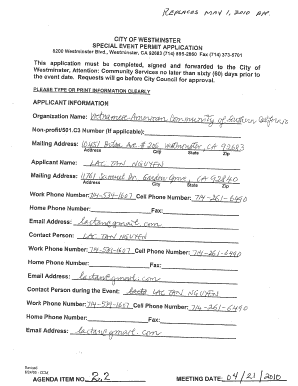 REPLACES MAY 1, 2010
CITY OF WESTMINSTER
SPECIAL EVENT PERMIT APPLICATION
8200 Westminster Blvd., Westminster, CA 92683 (714) 895-2860 Fax (714) 373-5701
This application must be completed, signed and forwarded to the City of
Westminster, Attention: Community Services no later than sixty (60) days prior to
the event date. Requests will go before City Council for approval.
PLEASE TYPE OR PRINT INFORMATION CLEARLY
APPLICANT INFORMATION
Organization Name: Vietnamese American Community of Southern California
Non-profit/501.C3 Number (if applicable):
Mailing Address: Ave # 206, Westminster, CA 92683
Address City State Zip
Applicant Name: LAC TAN NGUYEN
Mailing Address: 11761 Samuel Dr. Garden Grove, CA 92840
Address City State Zip
Work Phone Number: 714-534-1607 Cell Phone Number: 714-261-6490
Home Phone Number: Fax:
Email Address: lactan@gmail.com
Contact Person: LAC TAN NGUYEN
Work Phone Number: 714-534-1607 Cell Phone Number: 714-261-6490
Home Phone Number: Fax:
Email Address: lactan@gmail.com
Contact Person during the Event: LAC TAN NGUYEN
Work Phone Number: 714-534-1607 Cell Phone Number: 714-261-6490
Home Phone Number: Fax:
Email Address: lactan@gmail.com
Revised
AGENDA ITEM NO. 2.2 MEETING DATE: 04/21/2010